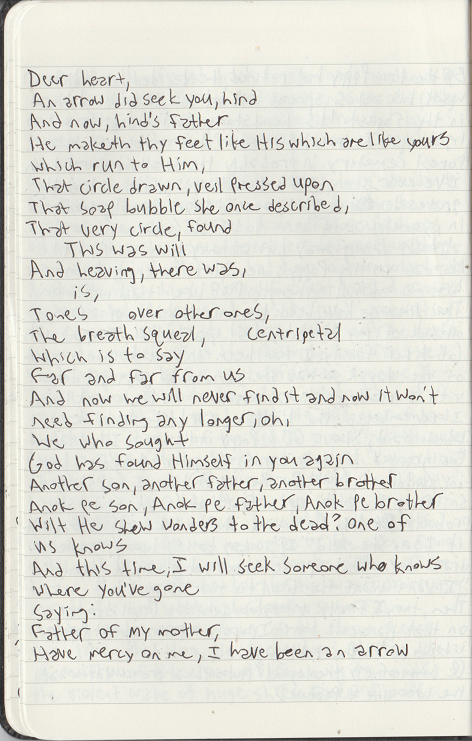 Dear heart,
An arrow did seek you, hind
And now, hind's father
He maketh thy feet like His which are like yours
which run to Him,
That circle drawn, veil pressed upon
That soap bubble she once described,
That very circle, found
This was will
And heaving, there was,
is,
Tones over other ones,
The breath squeal, centripetal
which is to say
Far and far from us
And now we will never find it and now it won't
need finding any longer, oh,
We who sought
God has found Himself in you again
Another son, another father, another brother
Anok pe son, Anok pe father, Anok pe brother
Wilt He shew wonders to the dead? One of
us knows
And this time, I will seek someone who knows
where you've gone
Saying:
Father of my mother,
Have mercy on me, I have been an arrow